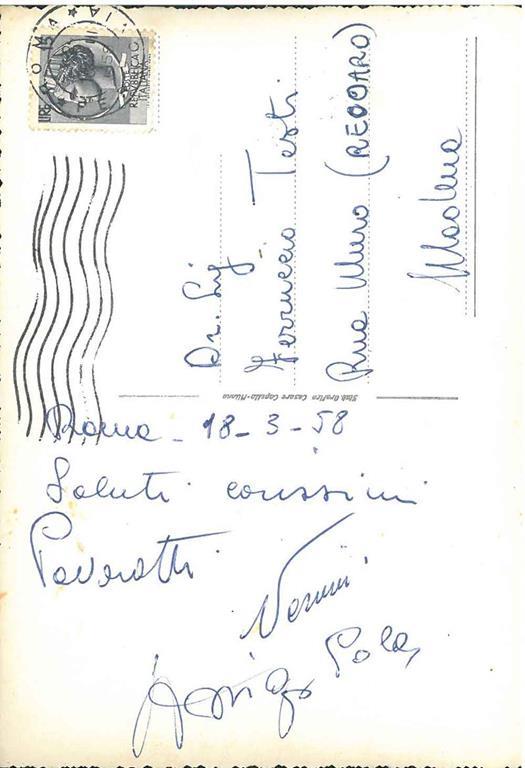 LIRE 15
REPUBBLICA
ITALIANA
ROMA
Dr. Sig
Ferruccio Testi
Rua Muro (REDDARO)
Modena
Stab. Grafico Cesare Capello-Milano
Roma - 18-3-58
Saluti carissimi
Pavarotti
Vannini
Arrigo Pola